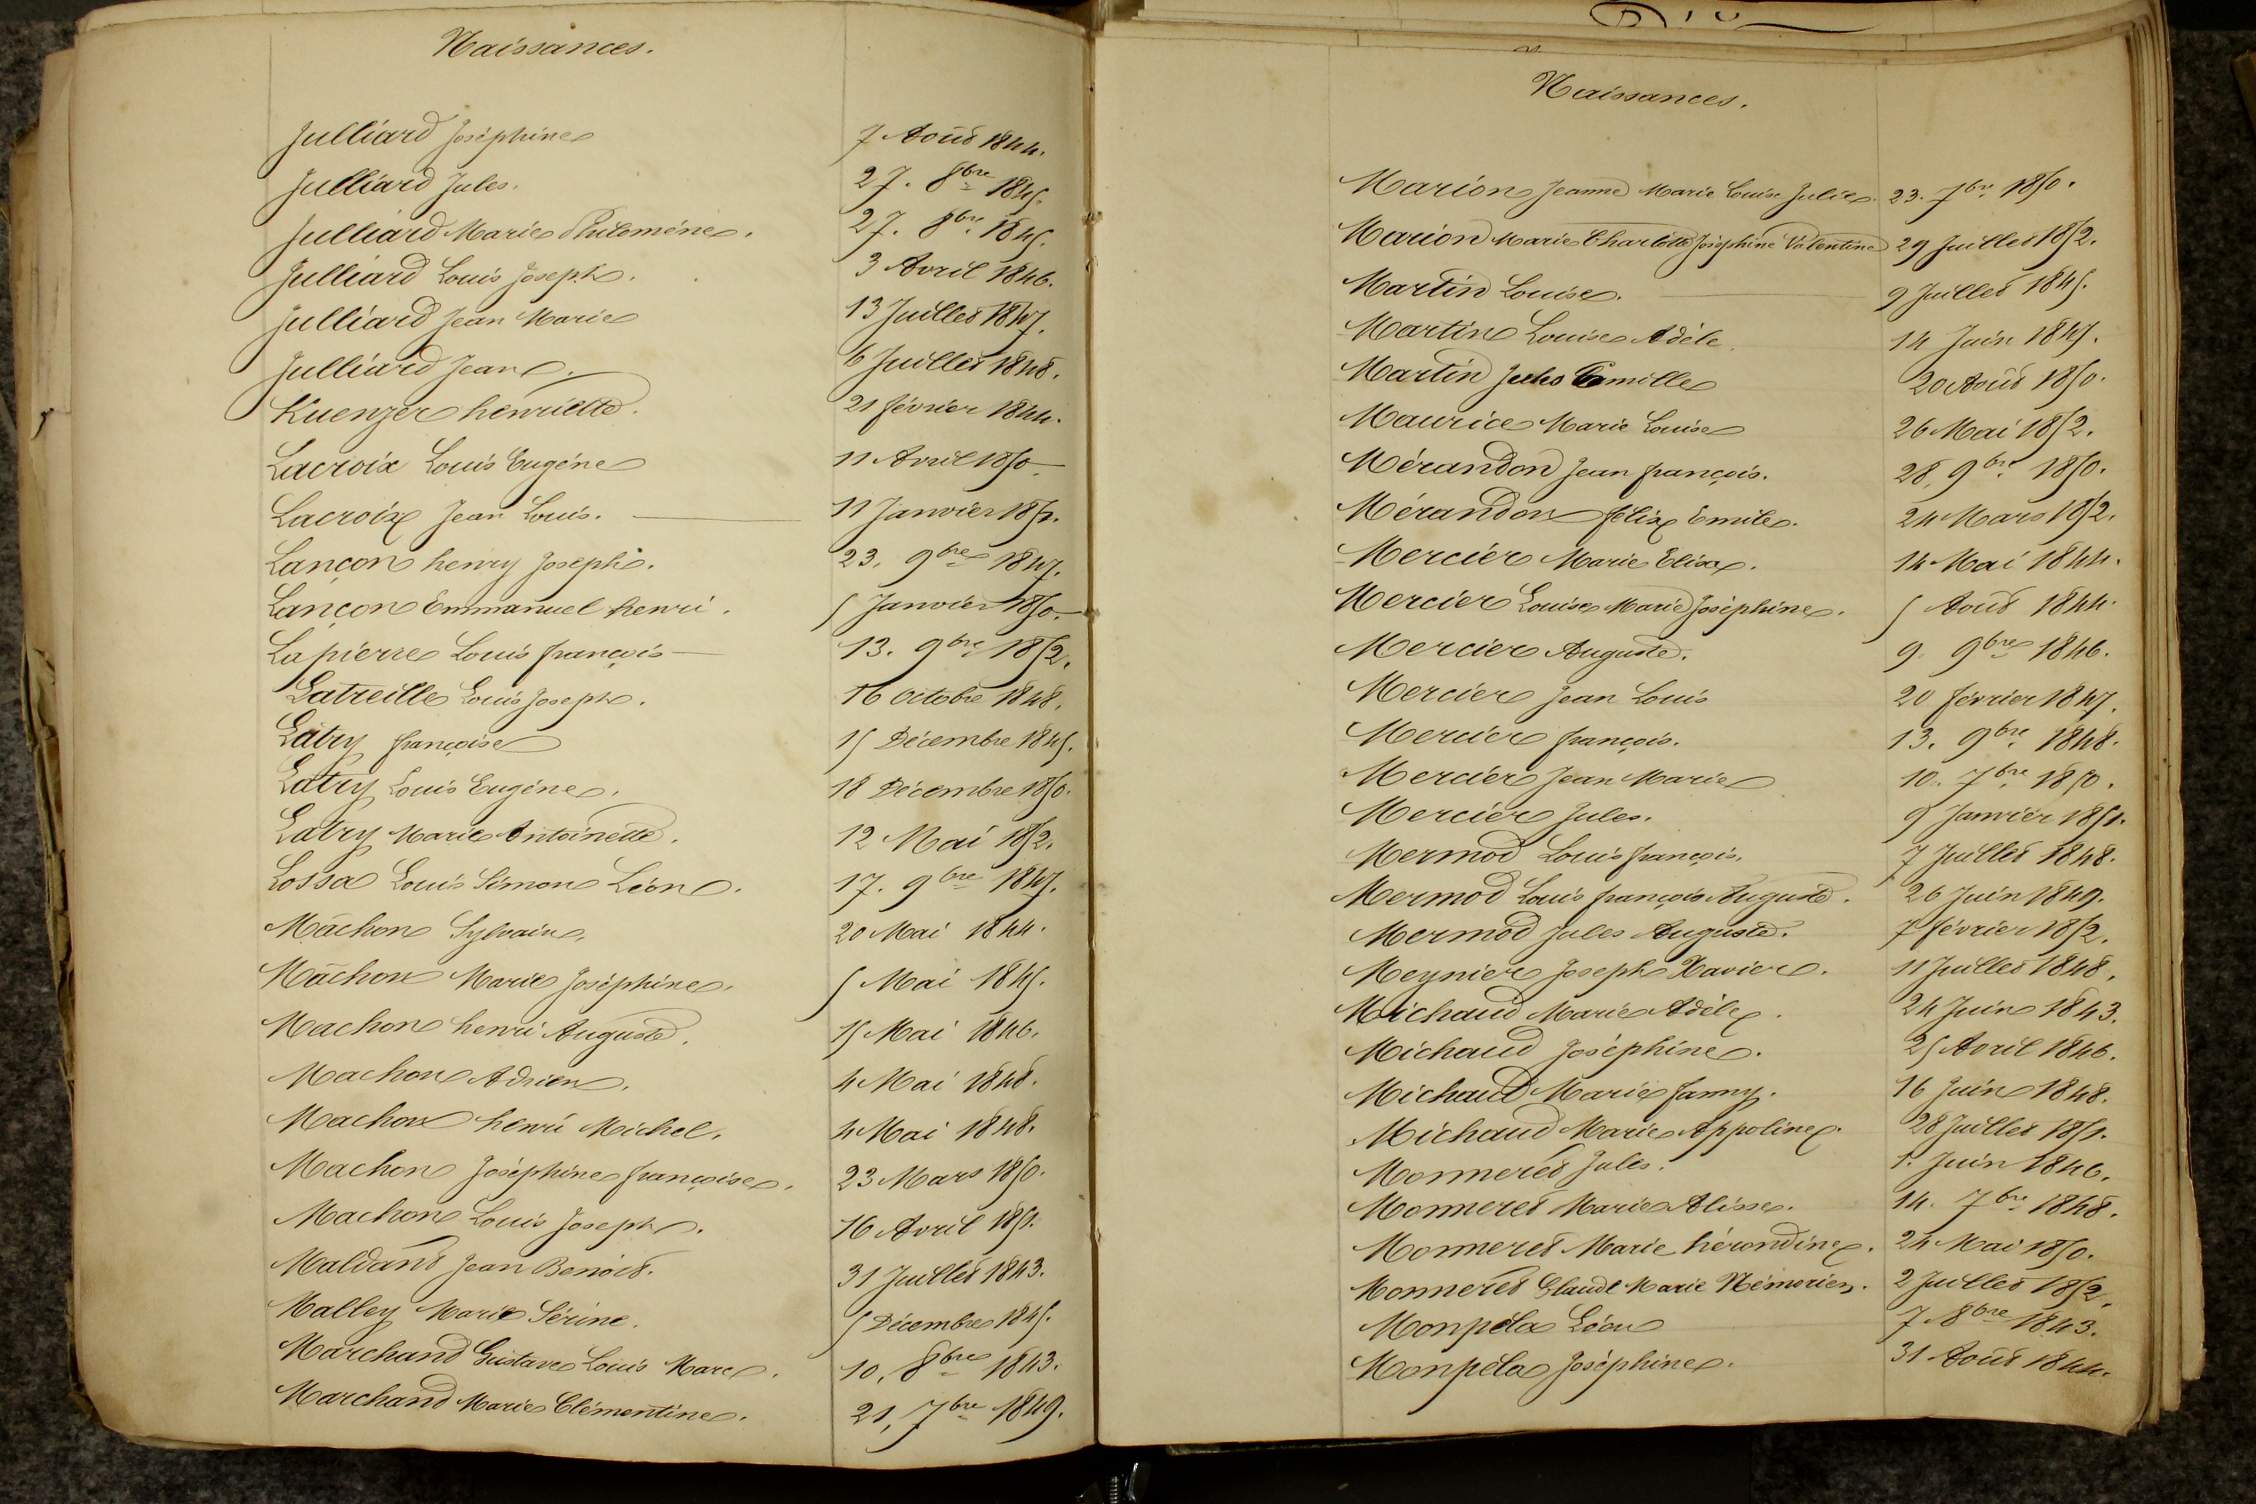 Naissances.
Julliard Joséphine 7 Août 1844.
Julliard Jules. 27. 8bre 1845.
Julliard Marie Philomène. 27. 8bre 1845.
Julliard Louis Joseph. 3 Avril 1846.
Julliard Jean Marie 13 Juillet 1847.
Julliard Jean. 6 Juillet 1848.
Kuenzer henriette. 21 février 1844.
Lacroix Louis Eugène 11 Avril 1850.
Lacroix Jean Louis. 11 Janvier 1852.
Lançon henry Joseph. 23. 9bre 1847.
Lançon Emmanuel henri. 5 Janvier 1850.
Lapierre Louis françois 13. 9bre 1852.
Latreille Louis Joseph. 16 Octobre 1848.
Latry françoise 15 Décembre 1845.
Latry Louis Eugène. 18 Décembre 1850.
Latry Marie Antoinette. 12 Mai 1852.
Lossa Louis Simon Léon. 17. 9bre 1847.
Mâchon Sylvain. 20 Mai 1844.
Mâchon Marie Joséphine. 5 Mai 1845.
Machon henri Auguste. 15 Mai 1846.
Machon Adrien. 4 Mai 1848.
Machon henri Michel. 4 Mai 1848.
Machon Joséphine françoise. 23 Mars 1850.
Machon Louis Joseph. 16 Avril 1851.
Maldant Jean Benoit. 31 Juillet 1843.
Malley Marie Sérine. 5 Décembre 1845.
Marchand Gustave Louis Marc. 10. 8bre 1843.
Marchand Marie Clémentine. 21. 7bre 1849.
Naissances.
Marion Jeanne Marie Louise Julie. 23. 7bre 1850.
Marion Marie Charlotte Joséphine Valentine 29 Juillet 1852.
Martin Louise. 9 Juillet 1845.
Martin Louise Adèle. 14 Juin 1847.
Martin Jules Camille 20 Août 1850.
Maurice Marie Louise 26 Mai 1852.
Mérandon Jean françois. 28. 9bre 1850.
Mérandon félix Emile. 24 Mars 1852.
Mercier Marie Elisa. 14 Mai 1844.
Mercier Louise Marie Joséphine. 5 Août 1844.
Mercier Auguste. 9 9bre 1846.
Mercier Jean Louis 20 février 1847.
Mercier françois. 13. 9bre 1848.
Mercier Jean Marie 10. 7bre 1850.
Mercier Jules. 9 Janvier 1851.
Mermod Louis françois. 7 Juillet 1848.
Mermod Louis françois Auguste. 26 Juin 1849.
Mermod Jules Auguste. 7 février 1852.
Meynier Joseph Xavier. 11 Juillet 1848.
Michaud Marie Adèle. 24 Juin 1843.
Michaud Joséphine. 25 Avril 1846.
Michaud Marie fanny. 16 Juin 1848.
Michaud Marie Appoline. 28 Juillet 1851.
Monneret Jules. 1. Juin 1846.
Monneret Marie Alisse. 14. 7bre 1848.
Monneret Marie hérondine. 24 Mai 1850.
Monneret Claude Marie Némorien. 2 Juillet 1852.
Monpéla Léon 7. 8bre 1843.
Monpéla Joséphine. 31 Août 1844.